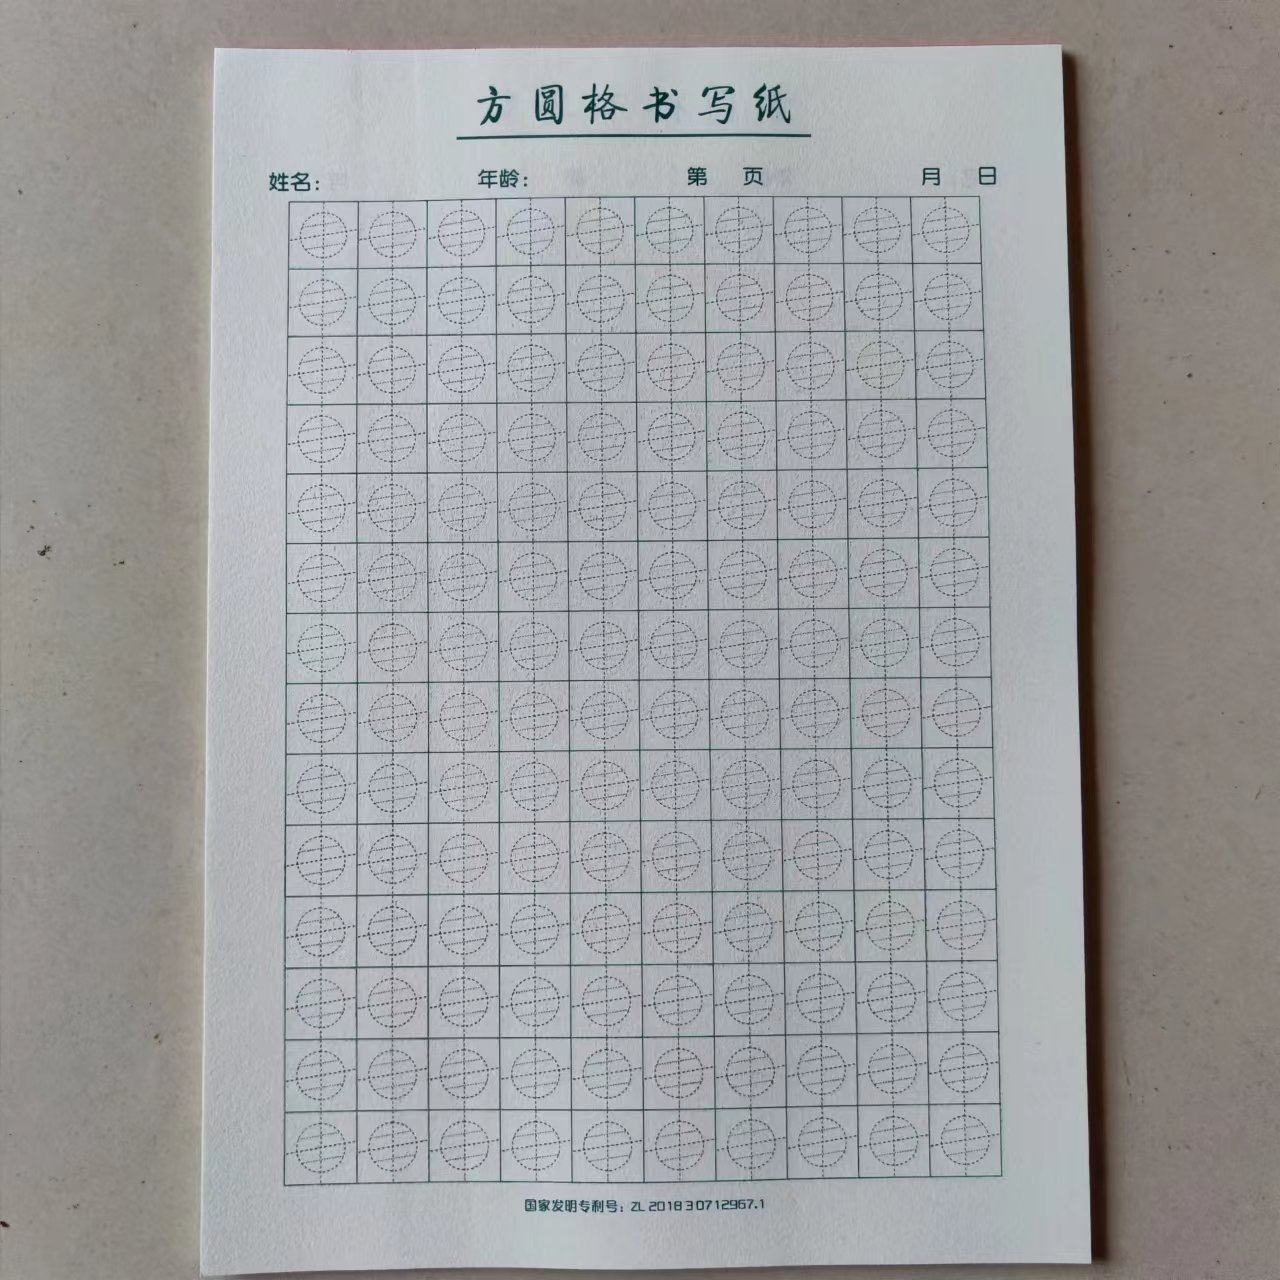 方圆格书写纸
姓名： 年龄： 第 页 月 日
国家发明专利号：ZL 2018 3 0712967.1